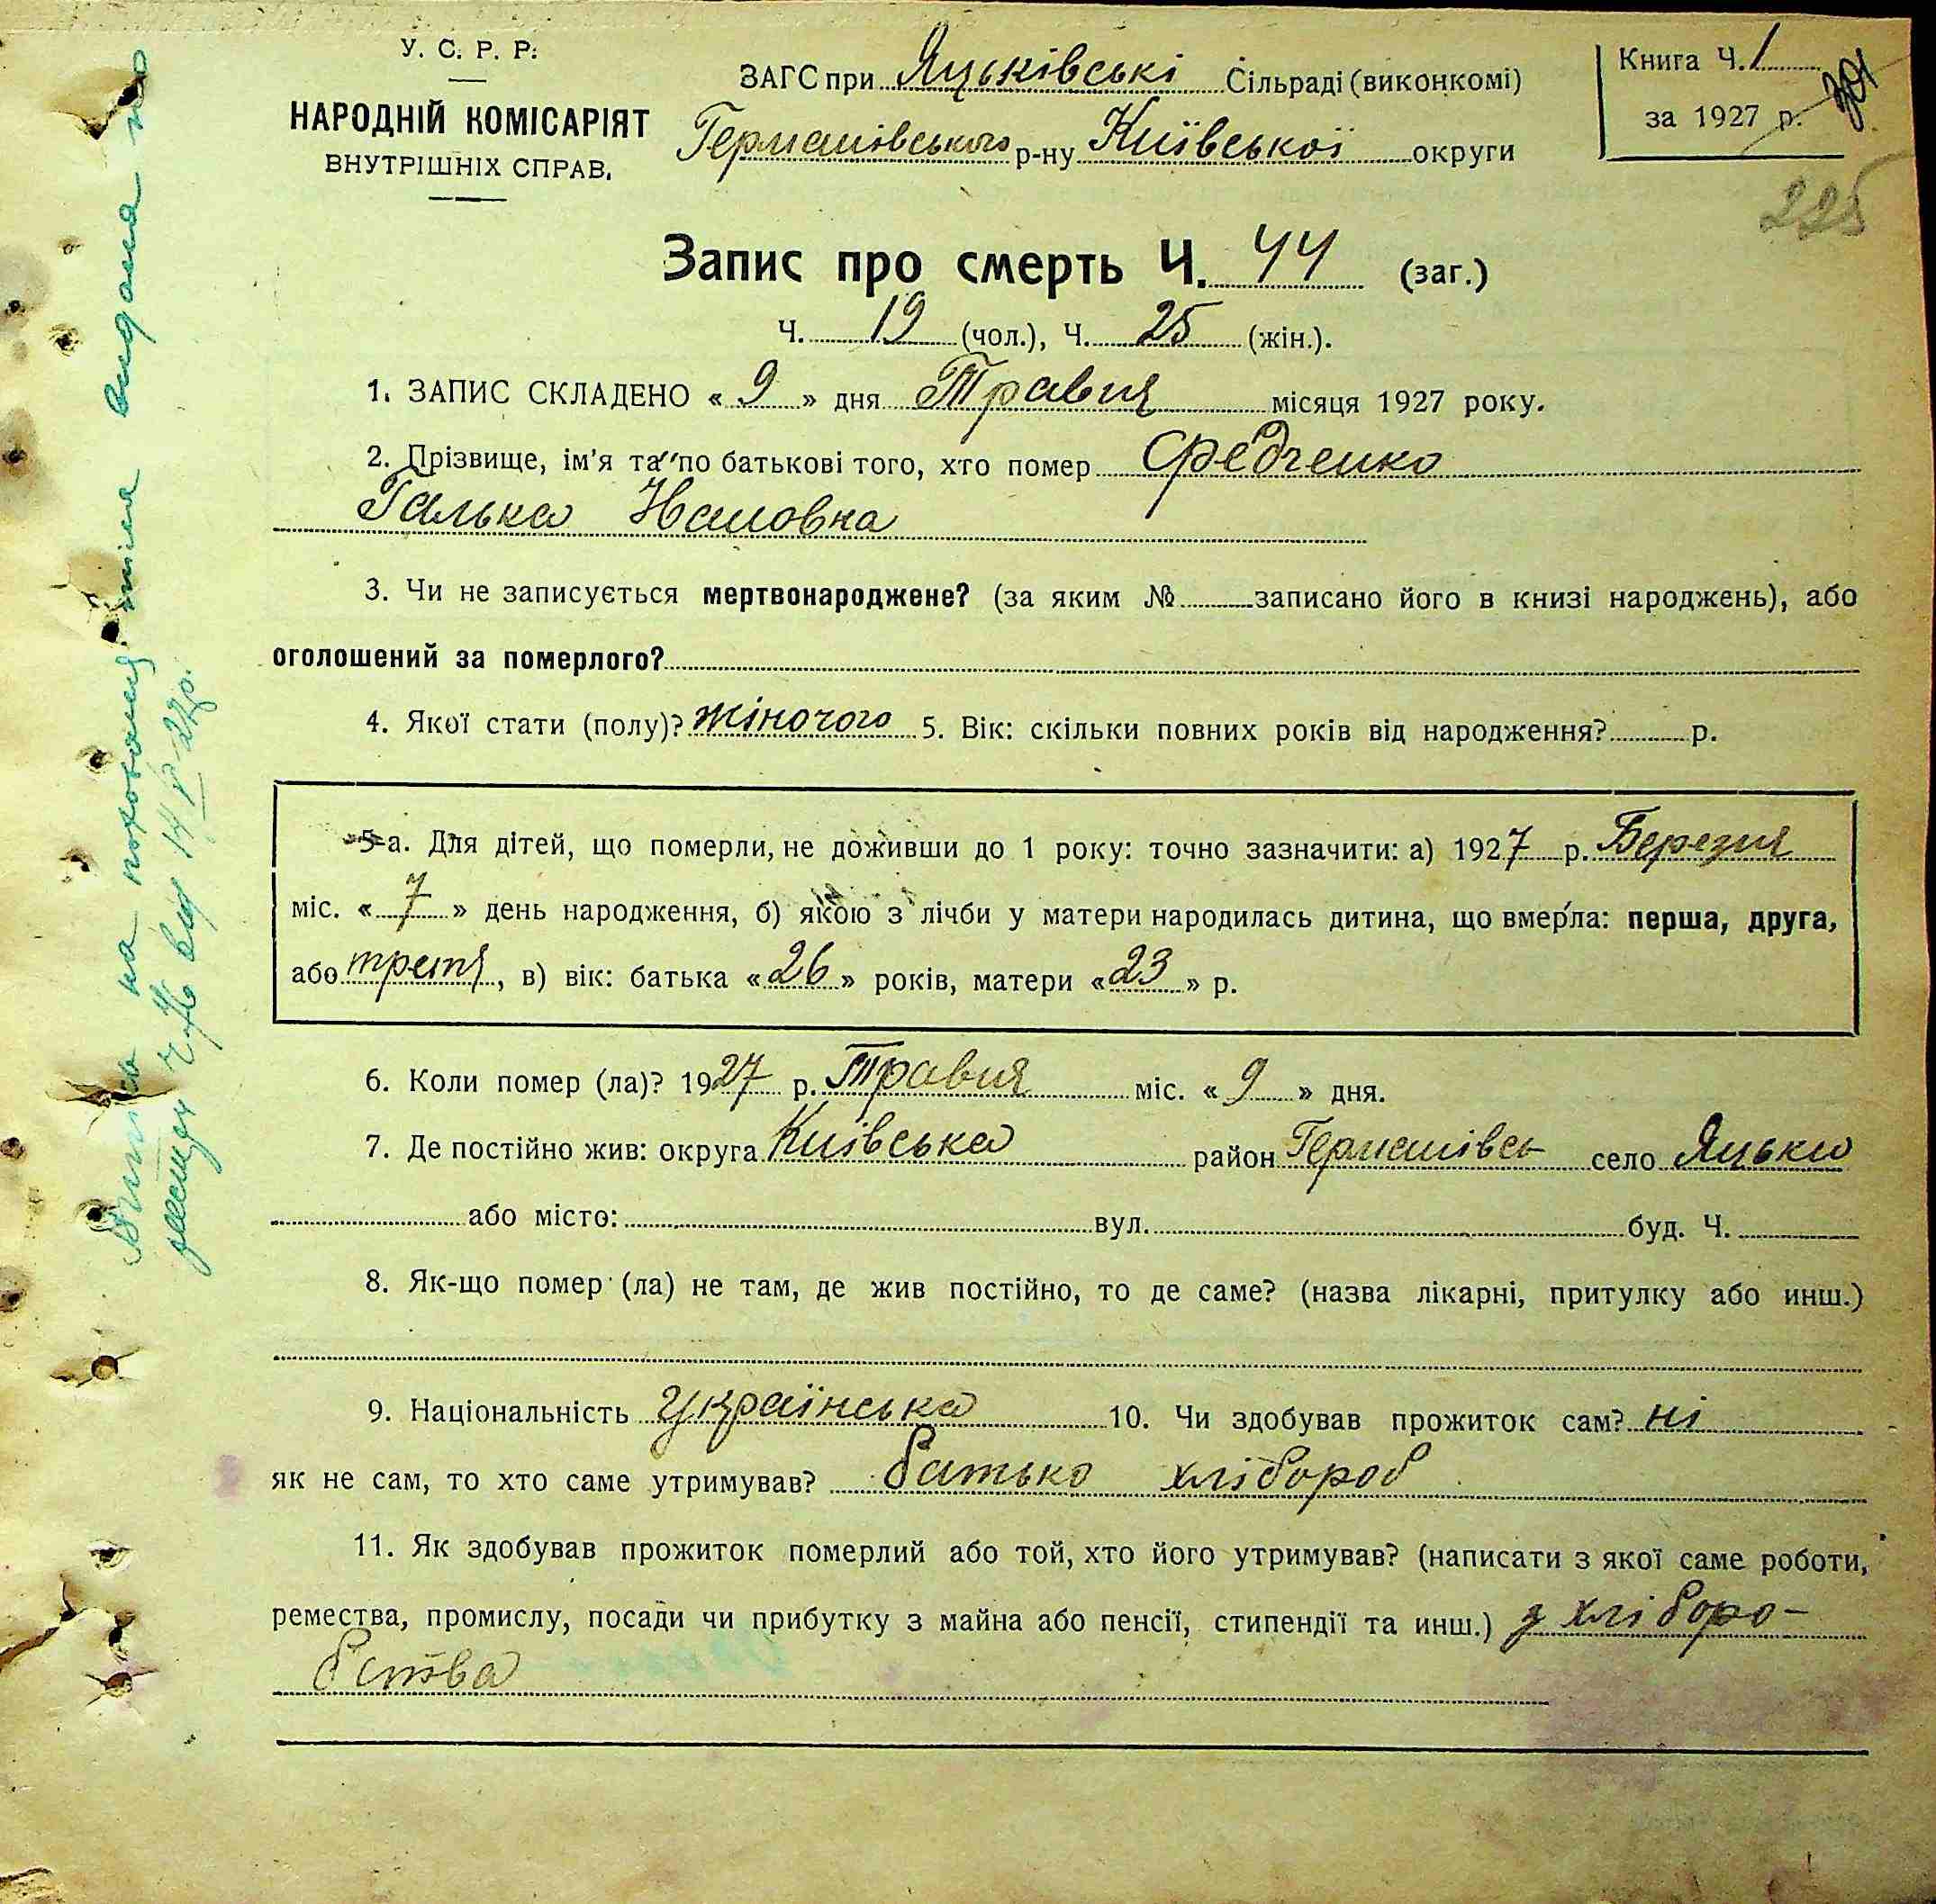 У. С. Р. Р.
НАРОДНІЙ КОМІСАРІЯТ
ВНУТРІШНІХ СПРАВ.
ЗАГС при Яцьківські Сільраді (виконкомі)
Германівського р-ну Київської округи
Книга Ч. 1
за 1927 р.
301
225
Запис про смерть Ч. 44 (заг.)
Ч. 19 (чол.), Ч. 25 (жін.).
1. ЗАПИС СКЛАДЕНО « 9 » дня Травня місяця 1927 року.
2. Прізвище, ім'я та по батькові того, хто помер Федченко
Галька
3. Чи не записується мертвонароджене? (за яким № записано його в книзі народжень), або
оголошений за померлого?
4. Якої стати (полу)? жіночого 5. Вік: скільки повних років від народження? р.
5-а. Для дітей, що померли, не доживши до 1 року: точно зазначити: а) 1927 р. Березня
міс. « 7 » день народження, б) якою з лічби у матери народилась дитина, що вмерла: перша, друга,
або третя, в) вік: батька « 26 » років, матери « 23 » р.
6. Коли помер (ла)? 1927 р. Травня міс. « 9 » дня.
7. Де постійно жив: округа Київська район Германівсь село Яцьки
або місто: вул. буд. Ч.
8. Як-що помер (ла) не там, де жив постійно, то де саме? (назва лікарні, притулку або инш.)
9. Національність Українська 10. Чи здобував прожиток сам? ні
як не сам, то хто саме утримував? батько хлібороб
11. Як здобував прожиток померлий або той, хто його утримував? (написати з якої саме роботи,
ремества, промислу, посади чи прибутку з майна або пенсії, стипендії та инш.) з хліборо-
бства